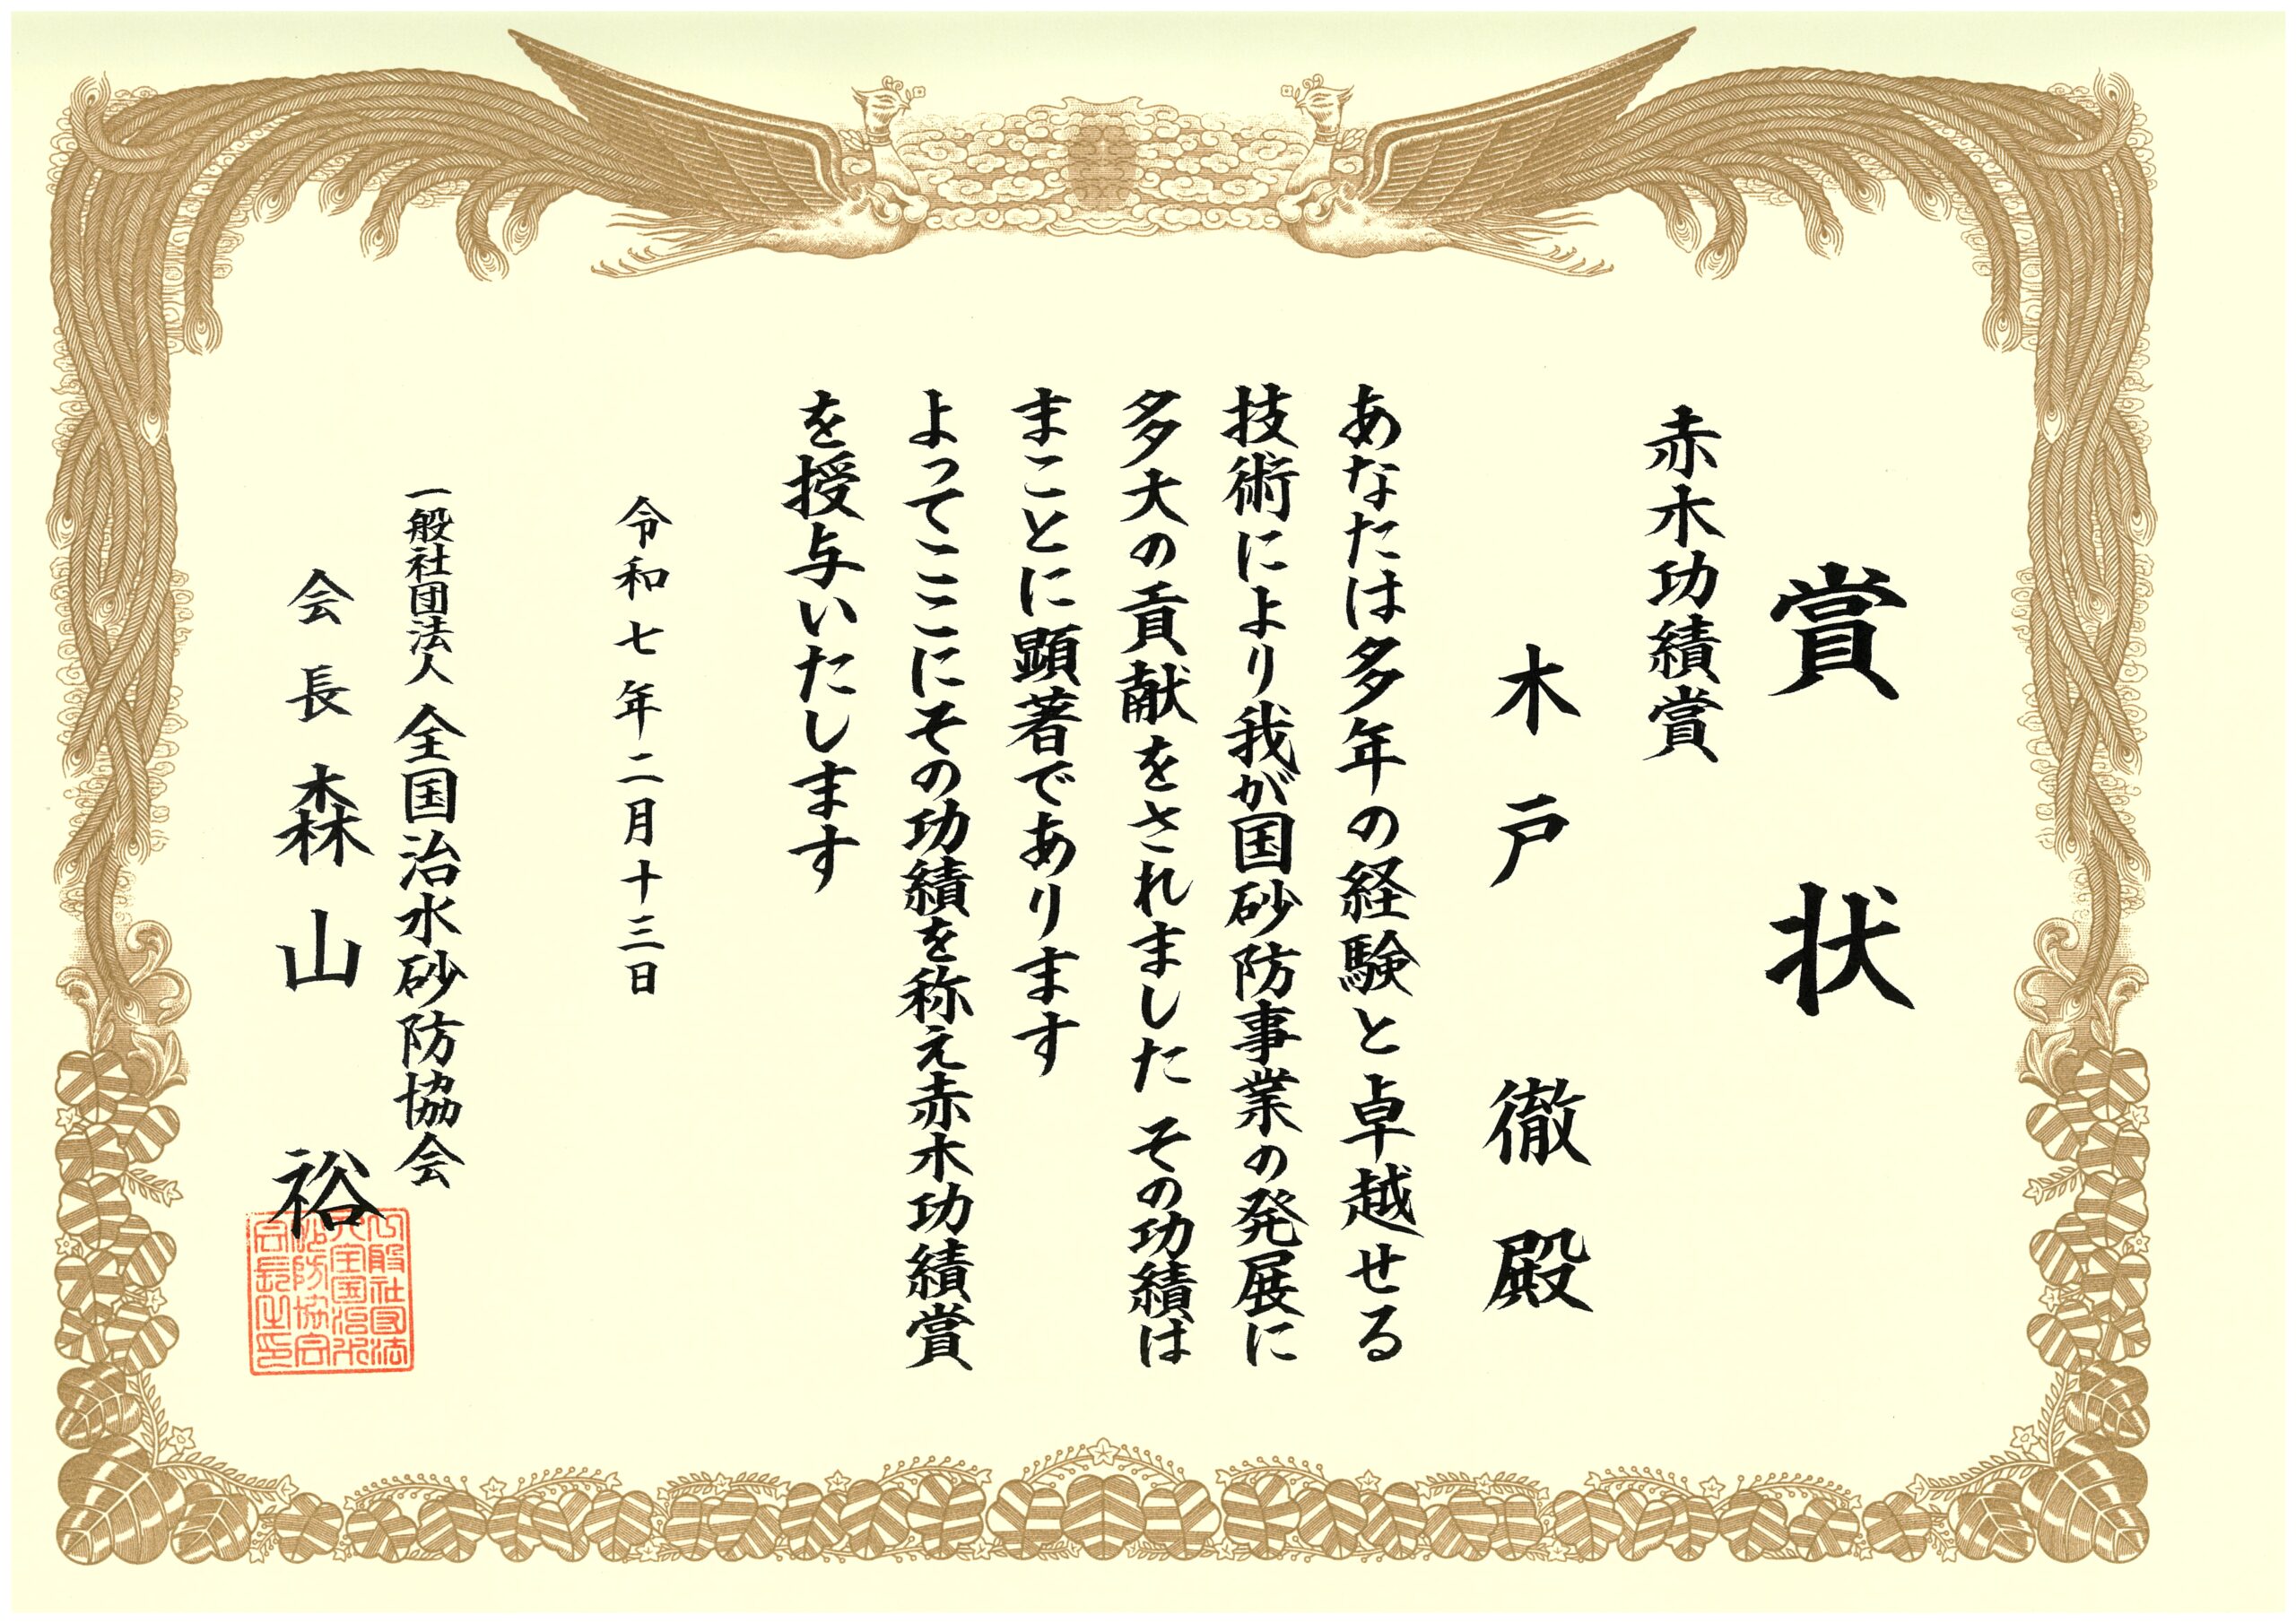 賞状
赤木功績賞
木戸徹殿
あなたは多年の経験と卓越せる
技術により我が国砂防事業の発展に
多大の貢献をされました その功績は
まことに顕著であります
よってここにその功績を称え赤木功績賞
を授与いたします
令和七年二月十三日
一般社団法人 全国治水砂防協会
会長 森山裕
一般社団法
人全国治水
砂防協会
会長之印